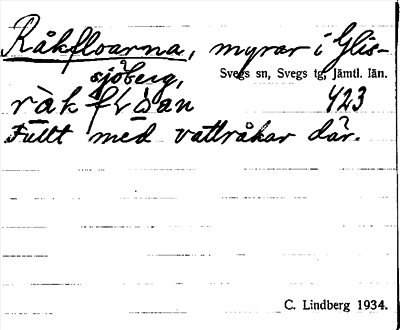 Råkfloarna, myrar i Glis-
sjöberg,
Svegs sn, Svegs tg, Jämtl. län.
423
Fullt med vattråkar där.
C. Lindberg 1934.